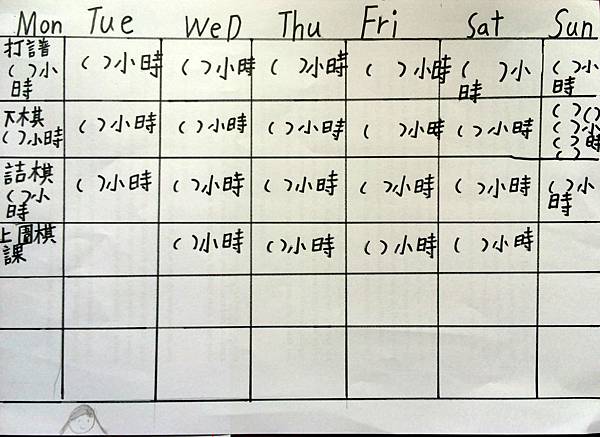 Mon Tue WeD Thu Fri Sat Sun
打譜
( )小 ( )小時 ( )小時 ( )小時 ( )小時 ( )小 ( )小
時 時 時
下棋
( )小時 ( )小時 ( )小時 ( )小時 ( )小時 ( )小時 ( )( )
( )小
( )時
( )
詰棋
( )小 ( )小時 ( )小時 ( )小時 ( )小時 ( )小時 ( )小
時 時
上圍棋 ( )小時 ( )小時 ( )小時 ( )小時
課